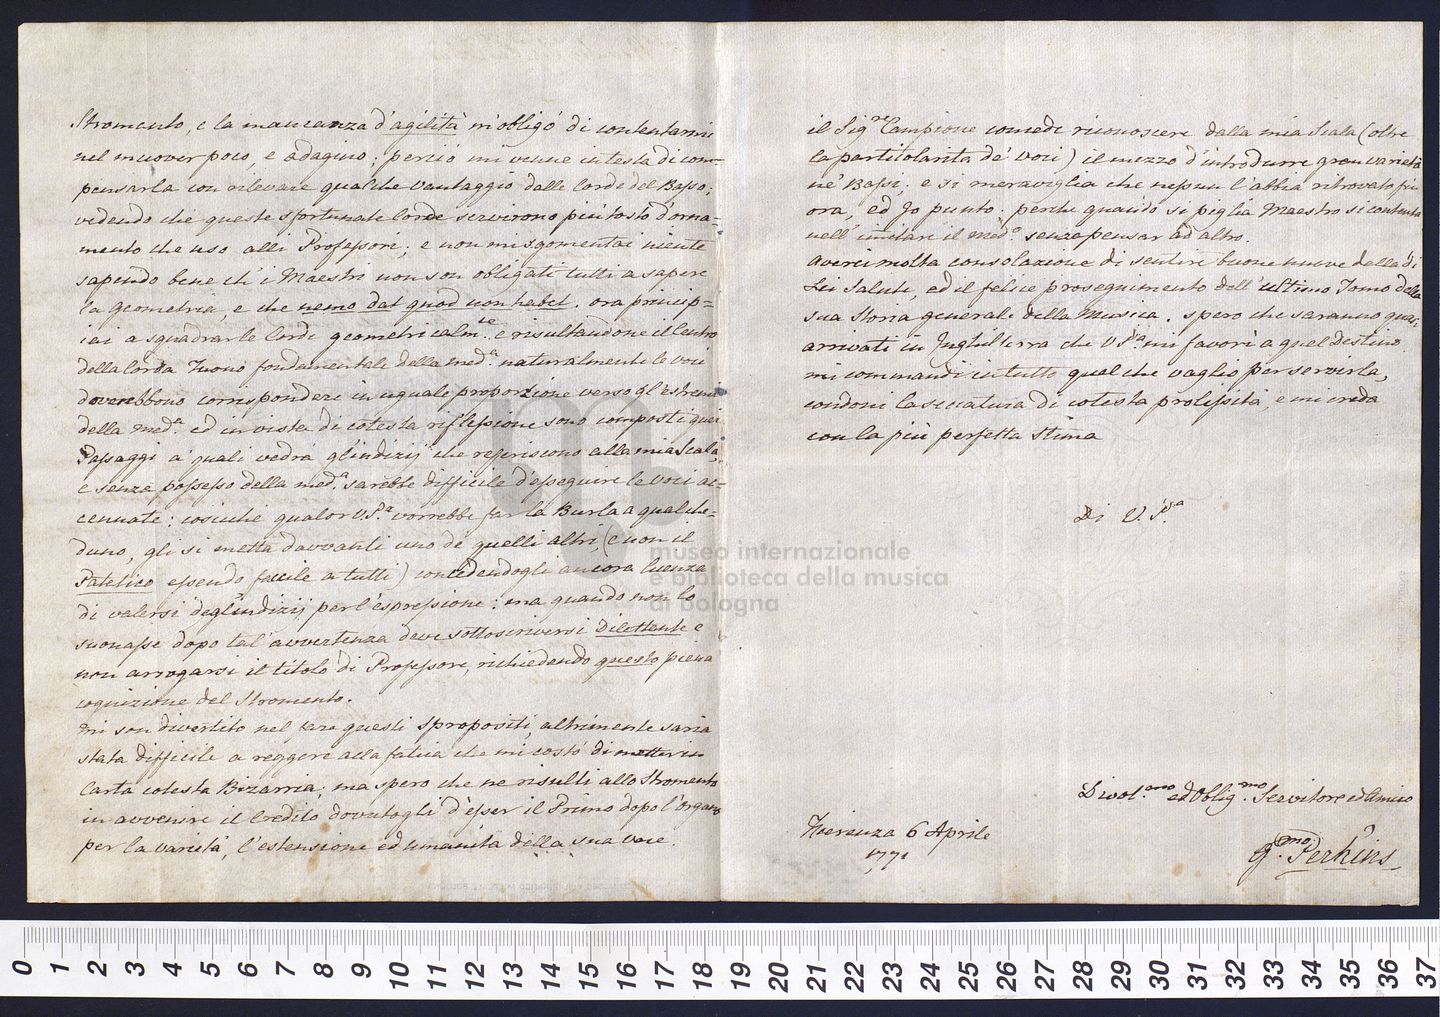 Stromento, e la mancanza d'agilità m'obligò di contentarmi
nel muover poco, e adagino; perciò mi venne in testa di com-
pensarla con rilevare qualche vantaggio dalle Corde del Basso;
vedendo che queste sfortunate Corde servirono più tosto d'orna-
mento che uso alli Professori; e non mi sgomentai niente
sapendo bene ch'i Maestri non son obligati tutti a sapere
la geometria, e che nemo dat quod non habet. ora princip-
iai a squadrar le Corde geometricalm.te e risultandone il Centro
della Corda Tuono fondamentale della med.a naturalmente le voci
doverebbono corrispondere in uguale proporzione verso gl'estremi
della med.a ed in vista di cotesta riflessione sono composti quei
Passaggi a' quali vedrà gl'indizij che referiscono alla mia Scala,
e senza possesso della med.a sarebbe difficile d'esseguire le voci ac-
cennate; cosiche qualor V.S.a vorrebbe far la Burla a qualche-
duno, gli si metta davvanti uno de quelli altri, (e non il
Patetico essendo faccile a tutti) concedendogli ancora licenza
di valersi degl'indizij per l'espressione; ma quando non lo
suonasse dopo tal'avvertenza deve sottoscriversi Dilettante e
non arrogarsi il titolo di Professore, richiedendo questo piena
cognizione del Stromento.
Mi son divertito nel fare questi spropositi, altrimente saria
stata difficile a reggere alla fatica che mi costò di metter in
Carta cotesta Bizarria; ma spero che ne risulti allo Stromento
in avvenire il Credito dovutogli d'esser il Primo dopo l'Organo
per la varietà, l'estensione ed umanità della sua voce.
il Sig.re Campione comedi riconoscere dalla mia Scala (oltre
la particolarita de' voci) il mezzo d'introdurre gran varietà
ne' Bassi; e si meraviglia che nessun l'abbia ritrovato fin
ora, ed Io punto; perche quando si piglia Maestro si contenta
nell'imitare il med.o senza pensar ad altro.
Averei molta consolazione di sentire buone nuove della di
Lei Salute, ed il felice proseguimento dell'ultimo Tomo della
sua Storia generale della Musica. spero che saranno quasi
arrivati in Inghilterra che V.S.a mi favorì a quel destino
mi commandi in tutto qual che vaglio per servirla,
condoni la seccatura di cotesta prolissità, e mi creda
con la più perfetta stima
Di V.S.a
Divot.mo ed Oblig.mo Servitore ed Amico
Fiorenza 6 Aprile
1771
G.mo Perkins
museo internazionale
e biblioteca della musica
di bologna
0 1 2 3 4 5 6 7 8 9 10 11 12 13 14 15 16 17 18 19 20 21 22 23 24 25 26 27 28 29 30 31 32 33 34 35 36 37